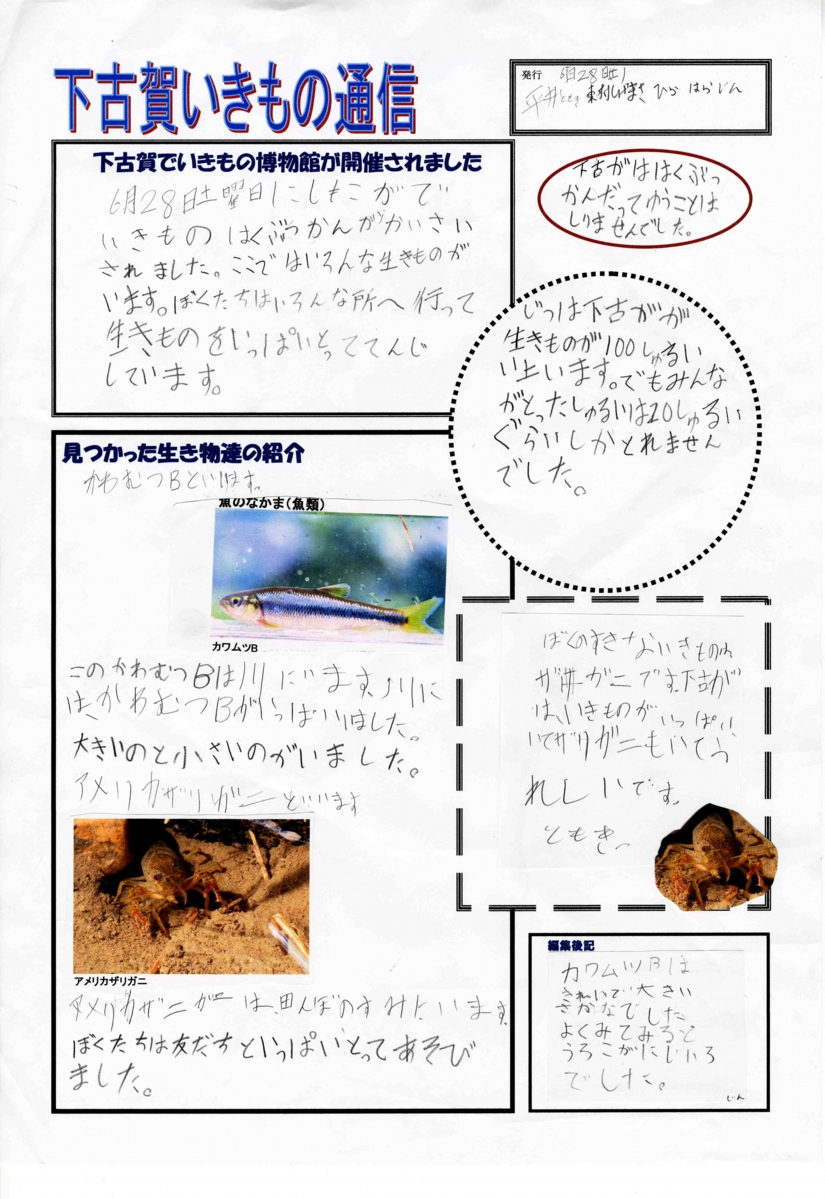 下古賀いきもの通信
発行 6月28日(土)
平井ともき 東村しげまさ ひらはらじん
下古賀でいきもの博物館が開催されました
6月28日土曜日にしもこがで
いきものはくぶつかんがかいさい
されました。ここではいろんな生きものが
います。ぼくたちはいろんな所へ行って
生きものをいっぱいとっててんじ
しています。
下古がははくぶつ
かんだってゆうことは
しりませんでした。
じつは下古がが
生きものが100しゅるい
い上います。でもみんな
がとったしゅるいは20しゅるい
ぐらいしかとれません
でした。
見つかった生き物達の紹介
かわむつBといます。
魚のなかま(魚類)
カワムツB
このかわむつBは川にいます。川に
は、かわむつBがいっぱいいました。
大きいのと小さいのがいました。
アメリカザリガニといいます
アメリカザリガニ
は、田んぼのすみにいます。
ぼくたちは友だちといっぱいとってあそび
ました。
ぼくのすきないきものは
ザリガニです。下古が
は、いきものがいっぱい
いてザリガニもいてう
れしいです。
ともき
編集後記
カワムツBは
きれいで大きい
さかなでした
よくみてみると
うろこがにじいろ
でした。
じん